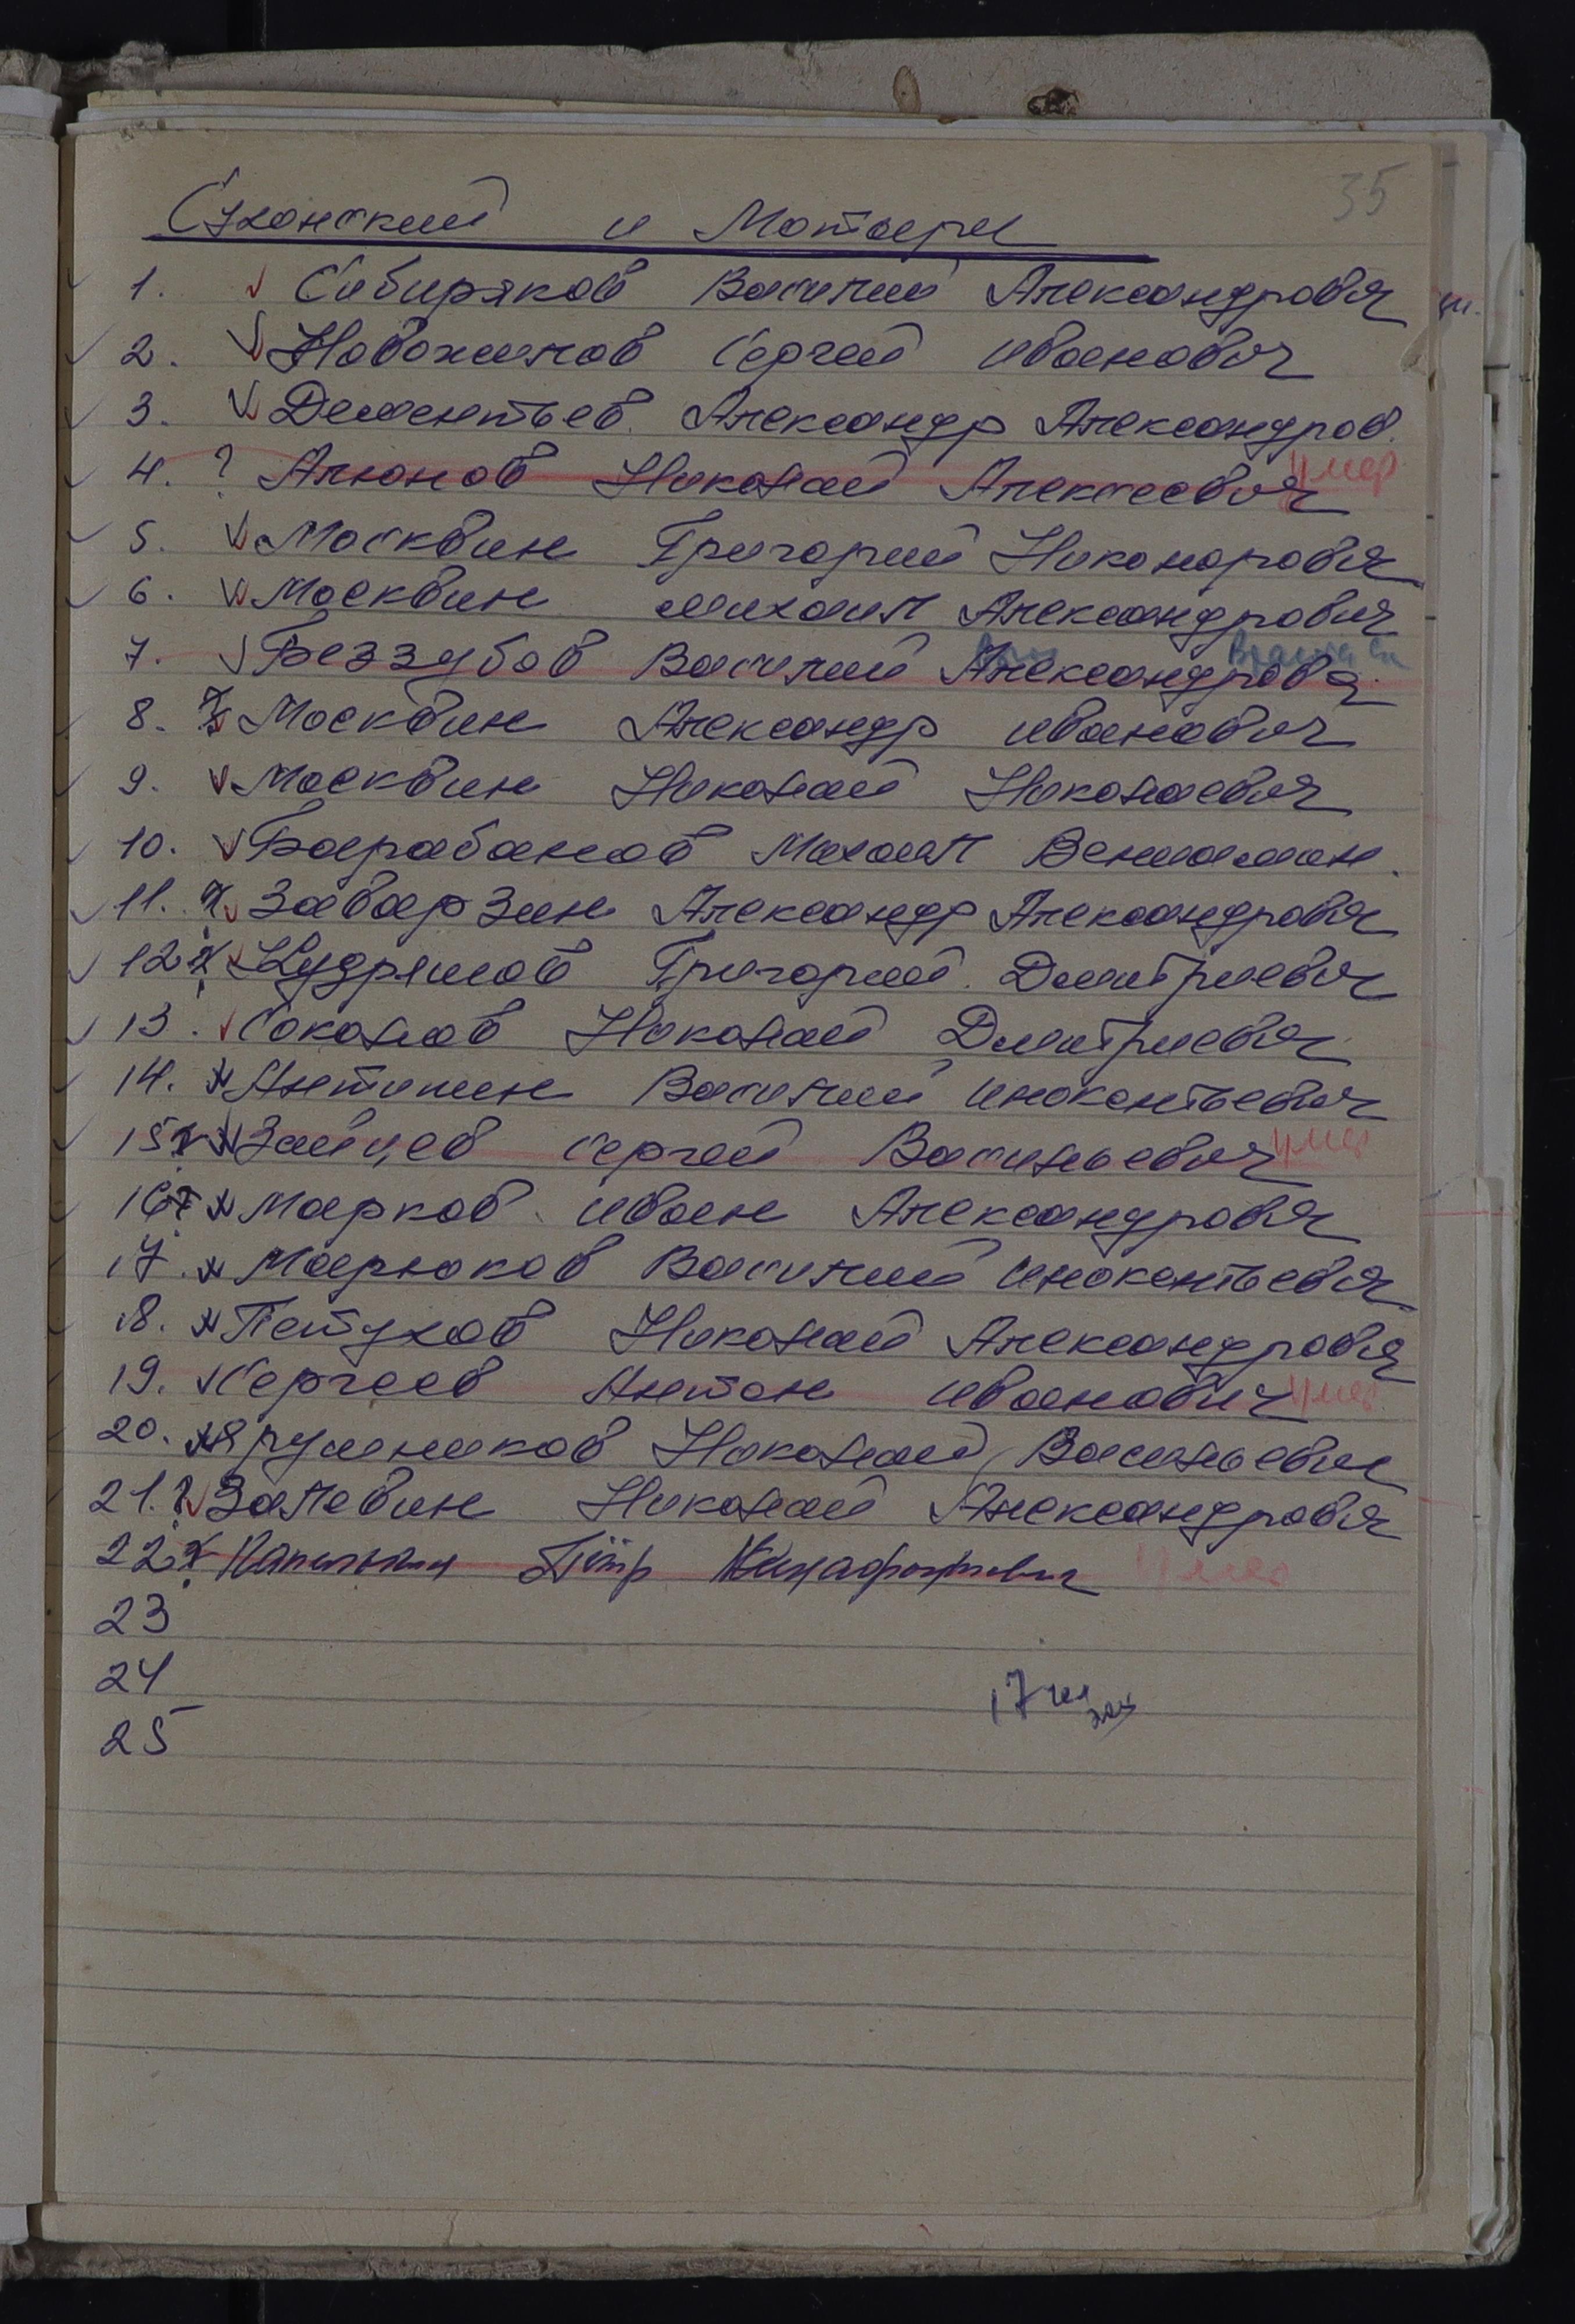 35
Сухонский и Мотыри
1. Сибиряков Василий Александрович
2. Новожилов Сергей Иванович
3. Дементьев Александр Александров.
4. ? Алюнов Николай Алексеевич умер
5. Москвин Григорий Никонорович
6. Москвин Михаил Александрович
7. Беззубов Василий Александрович
8. Москвин Александр Иванович
9. Москвин Николай Николаевич
10. Барабанов Михаил Вениамин.
11. Заварзин Александр Александрович
12 Кудряшов Григорий Дмитриевич
13. Соколов Николай Дмитриевич
14. Антипин Василий Инокентьевич
15 Зайцев Сергей Васильевич умер
16 Марков Иван Александрович
17. Марюков Василий Инокентьевич
18. Петухов Николай Александрович
19. Сергеев Антон Иванович умер
20. Ярушников Николай Васильевич
21. ? Залевин Николай Александрович
22 Пётр умер
23
24
17 чел
25